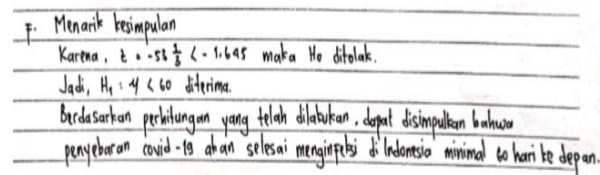 F. Menarik kesimpulan
Karena, z = -53 1/3 < -1.645 maka Ho ditolak.
Jadi, H₁ : μ < 60 diterima.
Berdasarkan perhitungan yang telah dilakukan, dapat disimpulkan bahwa
penyebaran covid-19 akan selesai menginfeksi di Indonesia minimal 60 hari ke depan.